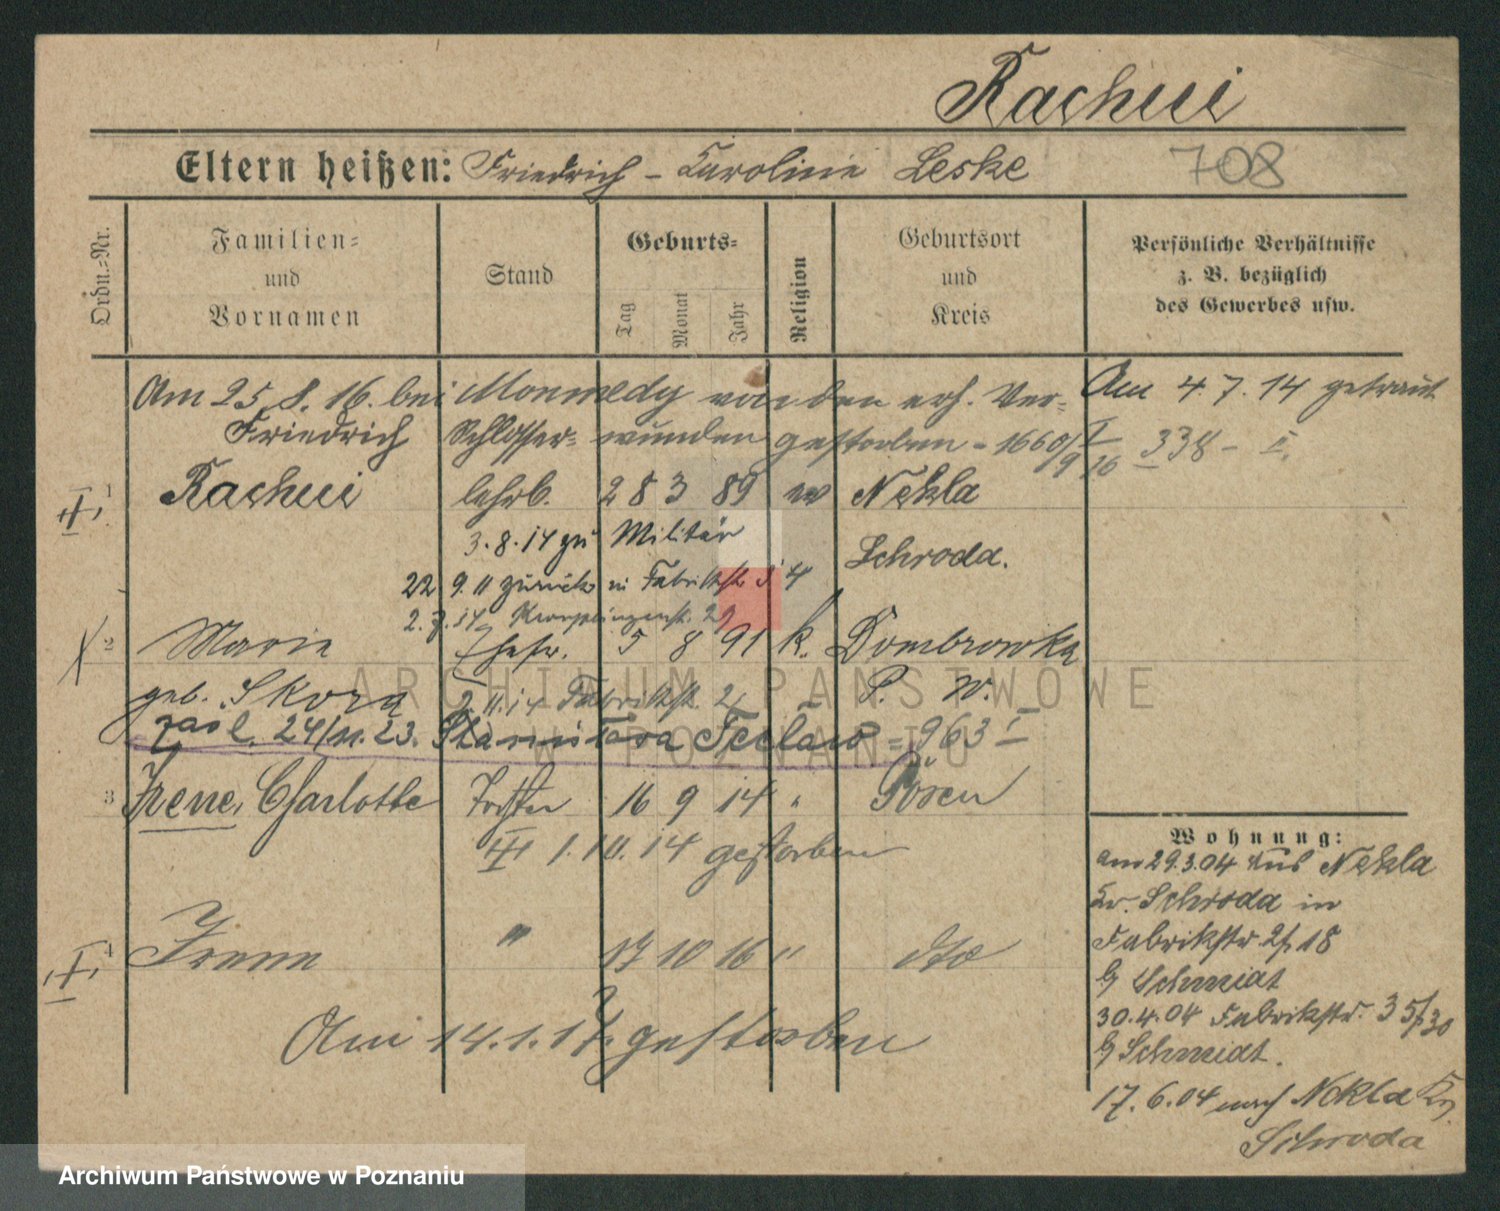 Rachui
Eltern heißen: Friedrich - Karoline Leske 708
Ordn.-Nr.
Familien-
und
Vornamen
Stand
Geburts-
Tag
Monat
Jahr
Religion
Geburtsort
und
Kreis
Persönliche Verhältnisse
z. B. bezüglich
des Gewerbes usw.
Am 25.8.16. bei Monmedy von den erh. Ver- Am 4.7.14 getraut
Friedrich Schlosser- wunden gestorben - 1660/9 I/16 338 - II.
1 Rachui lehrb. 28 3 89 ev Nekla
3.8.14 zu Militär Schroda.
22 9. 11 zurück in Fabrikstr
2 Marie Ehefr. 5 8 91 k. Dombrowka
geb. Skora 2.11.14 Fabrikstr. P. W.
zasl. 24/11.23. Stanisława = 963 I
3 Irene, Charlotte Tochter 16 9 14 " Posen
1.10.14 gestorben
Irene " 17 10 16 " dto
Am 14.1.17. gestorben
Wohnung:
am 29.3.04 aus Nekla
Kr. Schroda in
Fabrikstr 18
b/ Schmidt
30.4.04 Fabrikstr. 35/30
b/ Schmidt.
17.6.04 nach Nekla Kr.
Schroda
ARCHIWUM PAŃSTWOWE
W POZNANIU
Archiwum Państwowe w Poznaniu